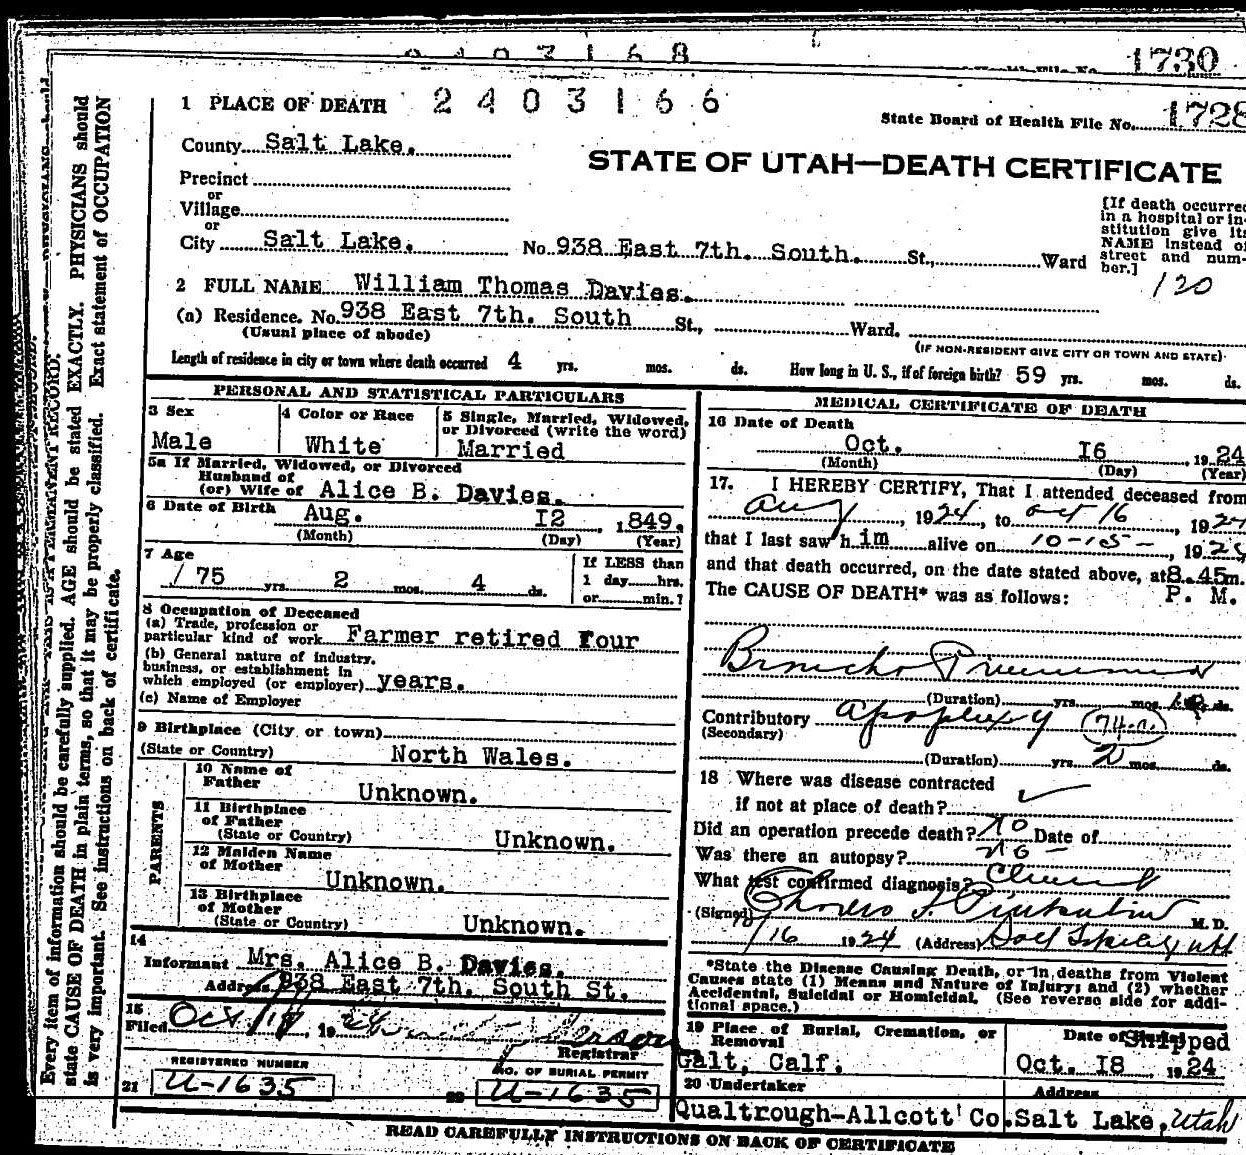 1730
2403168
1 PLACE OF DEATH 2403166
State Board of Health File No. 1728
County Salt Lake.
STATE OF UTAH—DEATH CERTIFICATE
Precinct
or
Village
or
City Salt Lake. No. 938 East 7th. South. St., Ward
[If death occurred
in a hospital or in-
stitution give its
NAME instead of
street and num-
ber.]
120
2 FULL NAME William Thomas Davies.
(a) Residence. No. 938 East 7th. South St., Ward.
(Usual place of abode)
(IF NON-RESIDENT GIVE CITY OR TOWN AND STATE)
Length of residence in city or town where death occurred 4 yrs. mos. ds. How long in U. S., if of foreign birth? 59 yrs. mos. ds.
PERSONAL AND STATISTICAL PARTICULARS
3 Sex
Male
4 Color or Race
White
5 Single, Married, Widowed,
or Divorced (write the word)
Married
5a If Married, Widowed, or Divorced
Husband of
(or) Wife of Alice B. Davies.
6 Date of Birth Aug. I2, 1849.
(Month) (Day) (Year)
7 Age
75 yrs. 2 mos. 4 ds.
If LESS than
1 day hrs.
or min.?
8 Occupation of Deceased
(a) Trade, profession or
particular kind of work Farmer retired Four
(b) General nature of industry,
business, or establishment in
which employed (or employer) years.
(c) Name of Employer
9 Birthplace (City or town)
(State or Country) North Wales.
PARENTS
10 Name of
Father
Unknown.
11 Birthplace
of Father
(State or Country) Unknown.
12 Maiden Name
of Mother
Unknown.
13 Birthplace
of Mother
(State or Country) Unknown.
14
Informant Mrs. Alice B. Davies.
Address 938 East 7th. South St.
15
Filed Oct 19
Registrar
REGISTERED NUMBER
21 U-1635
NO. OF BURIAL PERMIT
22 U-1635
MEDICAL CERTIFICATE OF DEATH
16 Date of Death
Oct. I6, 1924
(Month) (Day) (Year)
17. I HEREBY CERTIFY, That I attended deceased from
Aug, 1924, to Oct 16, 1924
that I last saw h im alive on 10-15-, 192
and that death occurred, on the date stated above, at 8.45 m.
The CAUSE OF DEATH* was as follows: P. M.
Broncho Pneumonia
(Duration) yrs. mos. ds.
Contributory Apoplexy 74-a.
(Secondary)
(Duration) yrs. 2 mos. ds.
18 Where was disease contracted
if not at place of death?
Did an operation precede death? No Date of
Was there an autopsy? No -
What test confirmed diagnosis? Clinical
(Signed) M. D.
10/16 1924 (Address) Salt Lake City Utah
*State the Disease Causing Death, or in deaths from Violent
Causes state (1) Means and Nature of Injury; and (2) whether
Accidental, Suicidal or Homicidal. (See reverse side for addi-
tional space.)
19 Place of Burial, Cremation, or
Removal
Galt, Calf.
Date of Shipped
Oct. I8, 1924
20 Undertaker
Qualtrough-Allcott Co.
Address
Salt Lake, Utah
READ CAREFULLY INSTRUCTIONS ON BACK OF CERTIFICATE
Every item of information should be carefully supplied. AGE should be stated EXACTLY. PHYSICIANS should
state CAUSE OF DEATH in plain terms, so that it may be properly classified. Exact statement of OCCUPATION
is very important. See instructions on back of certificate.